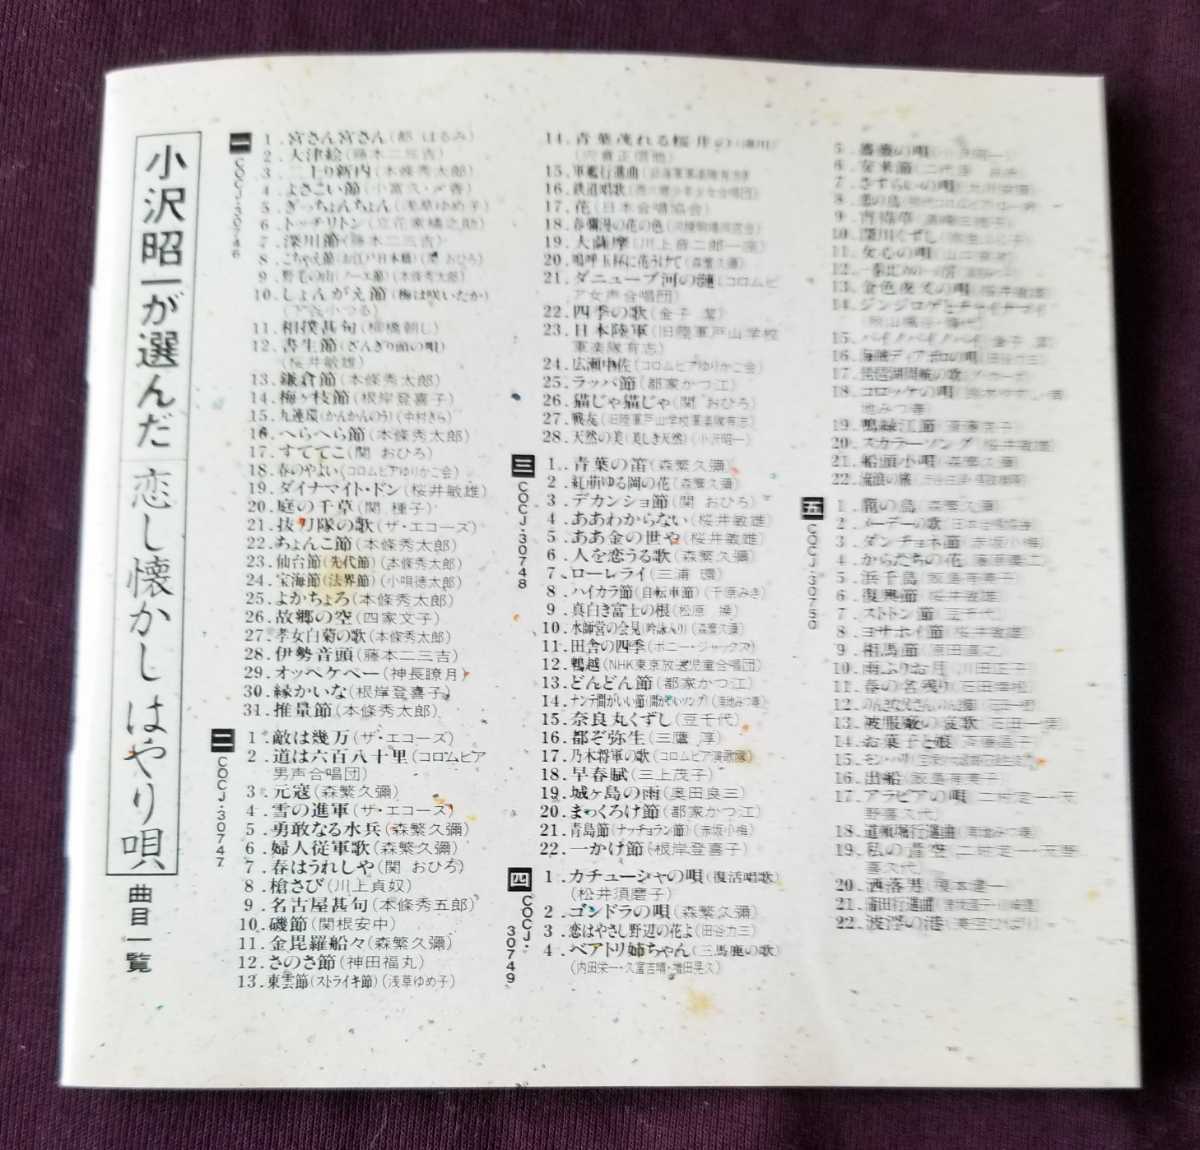 小沢昭一が選んだ 恋し懐かしはやり唄 曲目一覧
一 COCJ-30746
1.宮さん宮さん(都 はるみ)
2.大津絵(藤本二三吉)
3.二上り新内(本條秀太郎)
4.よさこい節(小富久・〆香)
5.ぎっちょんちょん(浅草ゆめ子)
6.トッチリトン(立花家橘之助)
7.深川節(藤本二三吉)
8.こちゃえ節(お江戸日本橋)(関 おひろ)
9.野毛の山(ノーエ節)(本條秀太郎)
10.しょんがえ節(梅は咲いたか)
11.相撲甚句(柳橋朝し)
12.書生節(ざんぎり頭の唄)
(桜井敏雄)
13.鎌倉節(本條秀太郎)
14.梅ヶ枝節(根岸登喜子)
15.九連環(かんかんのう)(中村きら)
16.へらへら節(本條秀太郎)
17.すててこ(関 おひろ)
18.春のやよい(コロムビアゆりかご会)
19.ダイナマイト・ドン(桜井敏雄)
20.庭の千草(関 種子)
21.抜刀隊の歌(ザ・エコーズ)
22.ちょんこ節(本條秀太郎)
23.仙台節(先代節)(本條秀太郎)
24.宝海節(法界節)(小唄徳太郎)
25.よかちょろ(本條秀太郎)
26.故郷の空(四家文子)
27.孝女白菊の歌(本條秀太郎)
28.伊勢音頭(藤本二三吉)
29.オッペケペー(神長瞭月)
30.縁かいな(根岸登喜子)
31.推量節(本條秀太郎)
二 COCJ-30747
1.敵は幾万(ザ・エコーズ)
2.道は六百八十里(コロムビア
男声合唱団)
3.元寇(森繁久彌)
4.雪の進軍(ザ・エコーズ)
5.勇敢なる水兵(森繁久彌)
6.婦人従軍歌(森繁久彌)
7.春はうれしや(関 おひろ)
8.槍さび(川上貞奴)
9.名古屋甚句(本條秀五郎)
10.磯節(関根安中)
11.金毘羅船々(森繁久彌)
12.さのさ節(神田福丸)
13.東雲節(ストライキ節)(浅草ゆめ子)
14.青葉茂れる桜井の
15.軍艦行進曲
16.鉄道唱歌
17.花(日本合唱協会)
18.春爛漫の花の色
19.大薩摩(川上音二郎一座)
20.嗚呼玉杯に花うけて(森繁久彌)
21.ダニューブ河の漣(コロムビ
ア女声合唱団)
22.四季の歌(金子 潔)
23.日本陸軍(旧陸軍戸山学校
軍楽隊有志)
24.広瀬中佐(コロムビアゆりかご会)
25.ラッパ節(都家かつ江)
26.猫じゃ猫じゃ(関 おひろ)
27.戦友(旧陸軍戸山学校軍楽隊有志)
28.天然の美(美しき天然)(小沢昭一)
三 COCJ-30748
1.青葉の笛(森繁久彌)
2.紅萌ゆる岡の花(森繁久彌)
3.デカンショ節(関 おひろ)
4.ああわからない(桜井敏雄)
5.ああ金の世や(桜井敏雄)
6.人を恋うる歌(森繁久彌)
7.ローレライ(三浦 環)
8.ハイカラ節(自転車節)(千原みき)
9.真白き富士の根(松原 操)
10.水師営の会見(吟詠入り)(森繁久彌)
11.田舎の四季(ボニー・ジャックス)
12.鵯越(NHK東京放送児童合唱団)
13.どんどん節(都家かつ江)
14.ナンテ間がいい節(間がいいソング)(菊地みつ春)
15.奈良丸くずし(豆千代)
16.都ぞ弥生(三鷹 淳)
17.乃木将軍の歌(コロムビア演歌隊)
18.早春賦(三上茂子)
19.城ヶ島の雨(奥田良三)
20.まっくろけ節(都家かつ江)
21.青島節(ナッチョラン節)(赤坂小梅)
22.一かけ節(根岸登喜子)
四 COCJ-30749
1.カチューシャの唄(復活唱歌)
(松井須磨子)
2.ゴンドラの唄(森繁久彌)
3.恋はやさし野辺の花よ(田谷力三)
4.ベアトリ姉ちゃん(三馬鹿の歌)
(内田栄一・久富吉晴・増田晃久)
5.薔薇の唄(小沢昭一)
6.安来節
7.さすらいの唄
8.恋の鳥
9.宵待草
10.深川くずし
11.女心の唄
12.
13.金色夜叉の唄(桜井敏雄)
14.ジンジロゲとチャイナマイ
15.パイノパイノパイ(金子 潔)
16.海賊ディアボロの唄(田谷力三)
17.琵琶湖周航の歌
18.コロッケの唄
19.鴨緑江節
20.スカラーソング(桜井敏雄)
21.船頭小唄(森繁久彌)
22.流浪の旅
五 COCJ-30750
1.籠の鳥(森繁久彌)
2.メーデーの歌(日本合唱協会)
3.ダンチョネ節(赤坂小梅)
4.からたちの花
5.浜千鳥
6.復興節(桜井敏雄)
7.ストトン節(豆千代)
8.ヨサホイ節(桜井敏雄)
9.相馬節(原田直之)
10.雨ふりお月(川田正子)
11.春の名残り
12.のんきな父さん
13.
14.お菓子と娘
15.モン・パリ
16.出船
17.アラビアの唄(二村定一・天
野喜久代)
18.道頓堀行進曲(菊地みつ春)
19.私の青空(二村定一・天野
喜久代)
20.洒落男(榎本健一)
21.蒲田行進曲
22.波浮の港